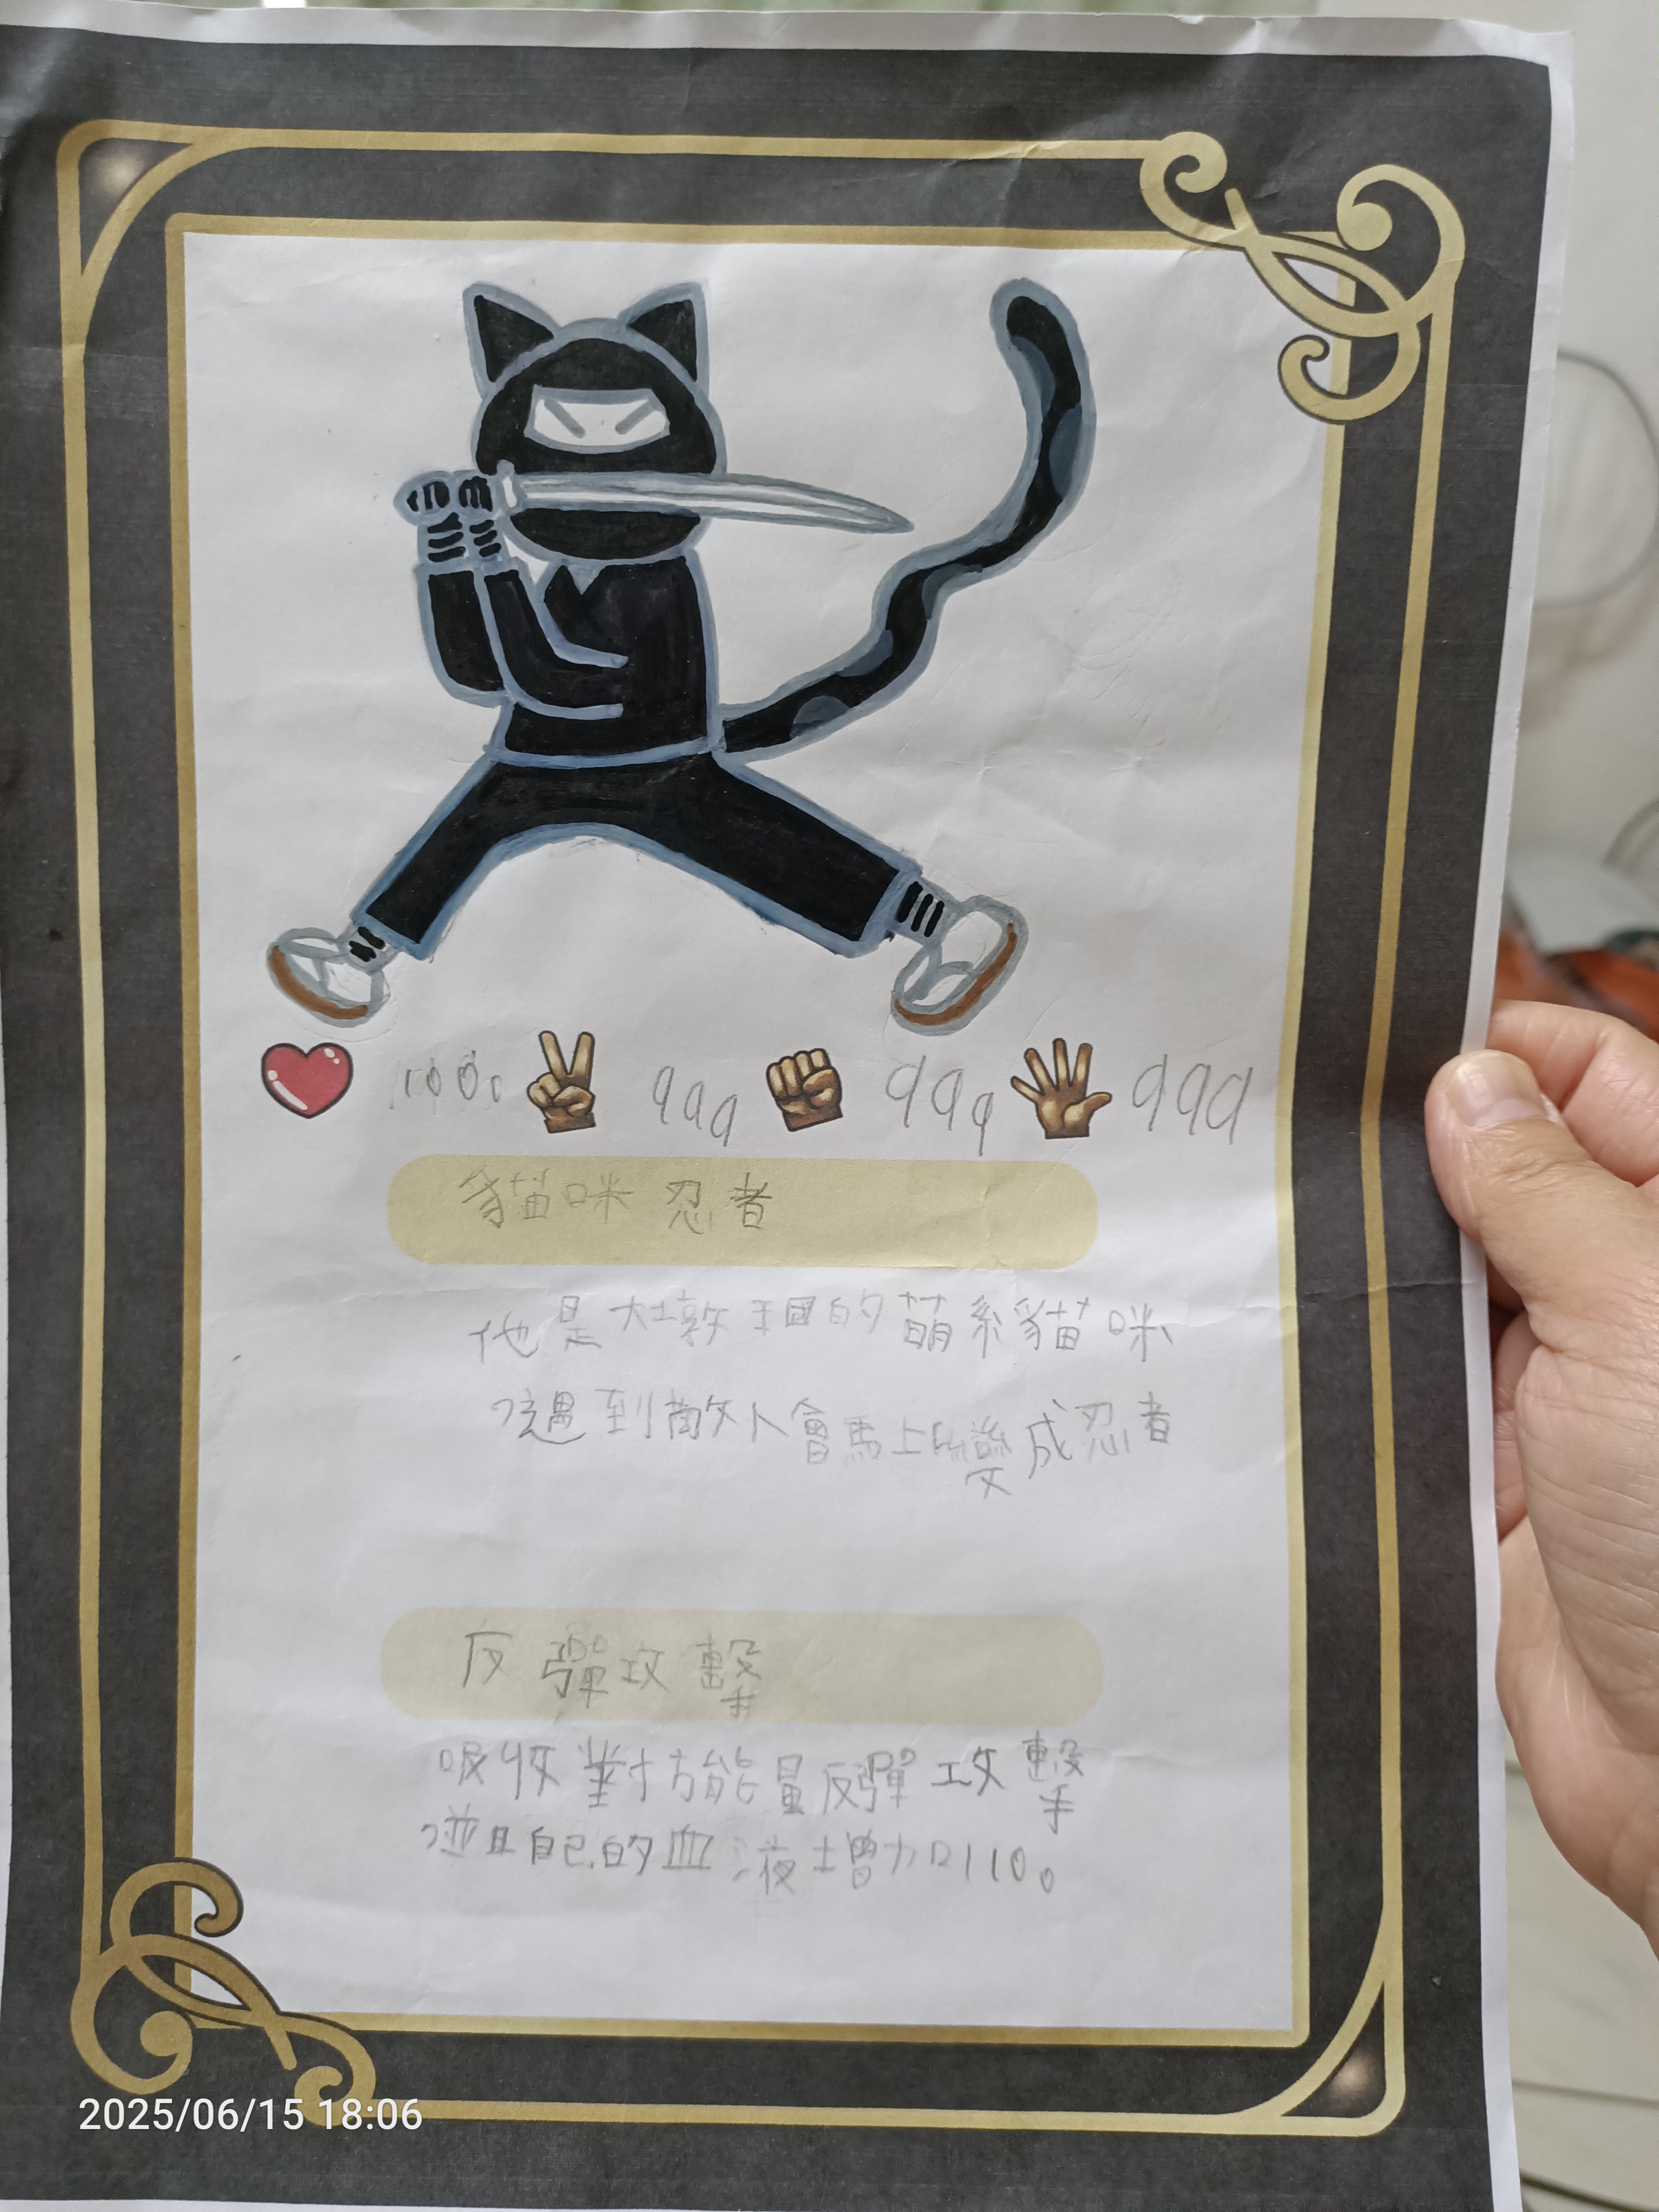 1000 999 999 999
貓咪忍者
他是大墩王國的萌系貓咪
遇到敵人會馬上變成忍者
反彈攻擊
吸收對方能量反彈攻擊
並且自己的血液增加110。
2025/06/15 18:06